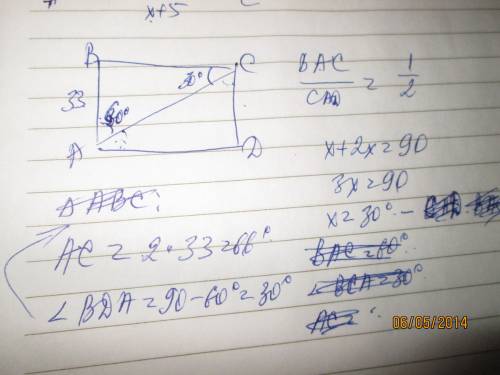 x+5
B
C
30°
33
60°
A
D
BAC/CAD = 1/2
x+2x=90
3x=90
x=30°-
ΔABC:
AC=2·33=66
BAC=60°
∠BCA=30°
∠BDA=90-60°=30°
AC=
06/05/2014